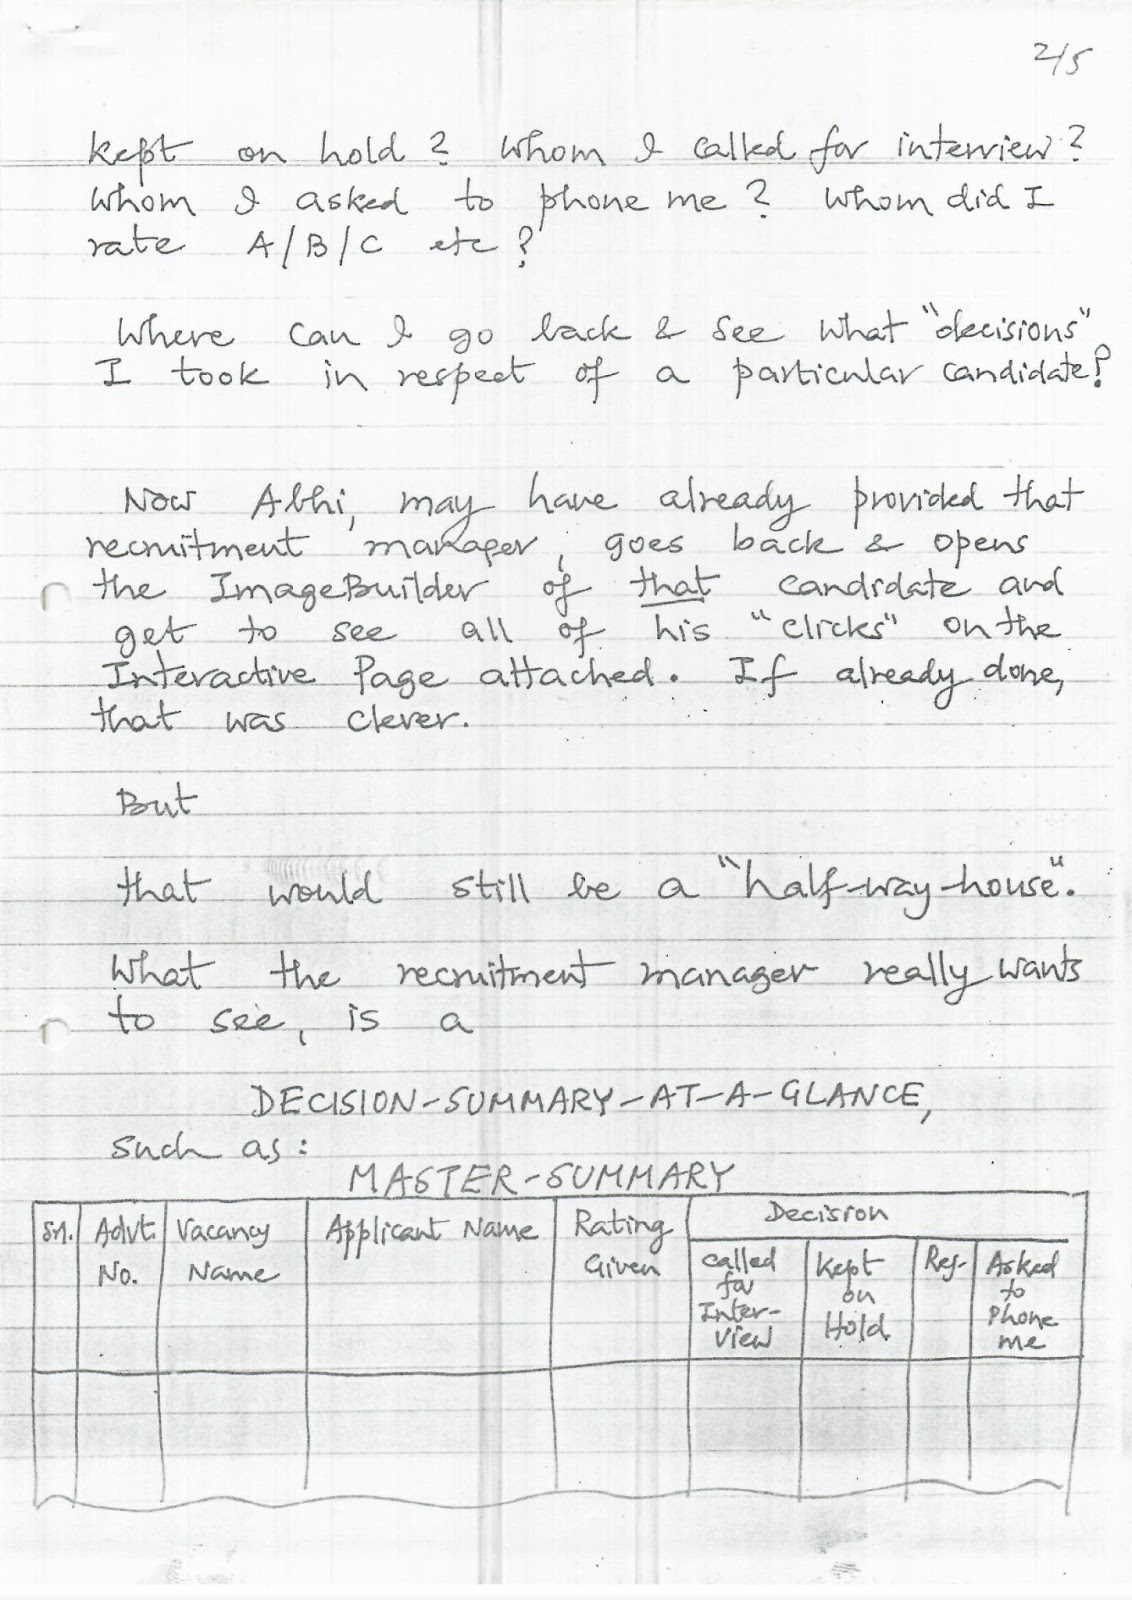 2/5
kept on hold? Whom I called for interview?
Whom I asked to phone me? Whom did I
rate A/B/C etc?
Where can I go back & see what "decisions"
I took in respect of a particular candidate?
Now Abhi, may have already provided that
recruitment manager, goes back & opens
the ImageBuilder of that candidate and
get to see all of his "clicks" on the
Interactive Page attached. If already done,
that was clever.
But
that would still be a "half-way-house".
What the recruitment manager really wants
to see, is a
DECISION-SUMMARY-AT-A-GLANCE,
such as:
MASTER-SUMMARY
Sn. Advt. Vacancy Applicant Name Rating Decision
No. Name Given
Called Kept Rej. Asked
for on to
Inter- Hold Phone
view me